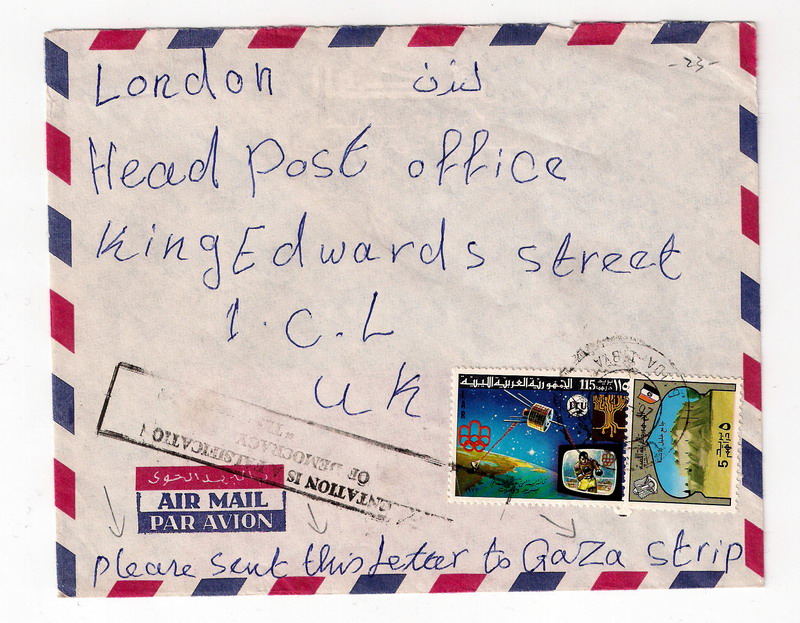 London لندن -23-
Head Post office
King Edwards street
1.C.L
UK
الجمهورية العربية الليبية 115
ITU
LAR
5
NTATION IS FALSIFICATIO
OF DEMOCRACY
البريد الجوى
AIR MAIL
PAR AVION
please sent this Letter to GaZa strip